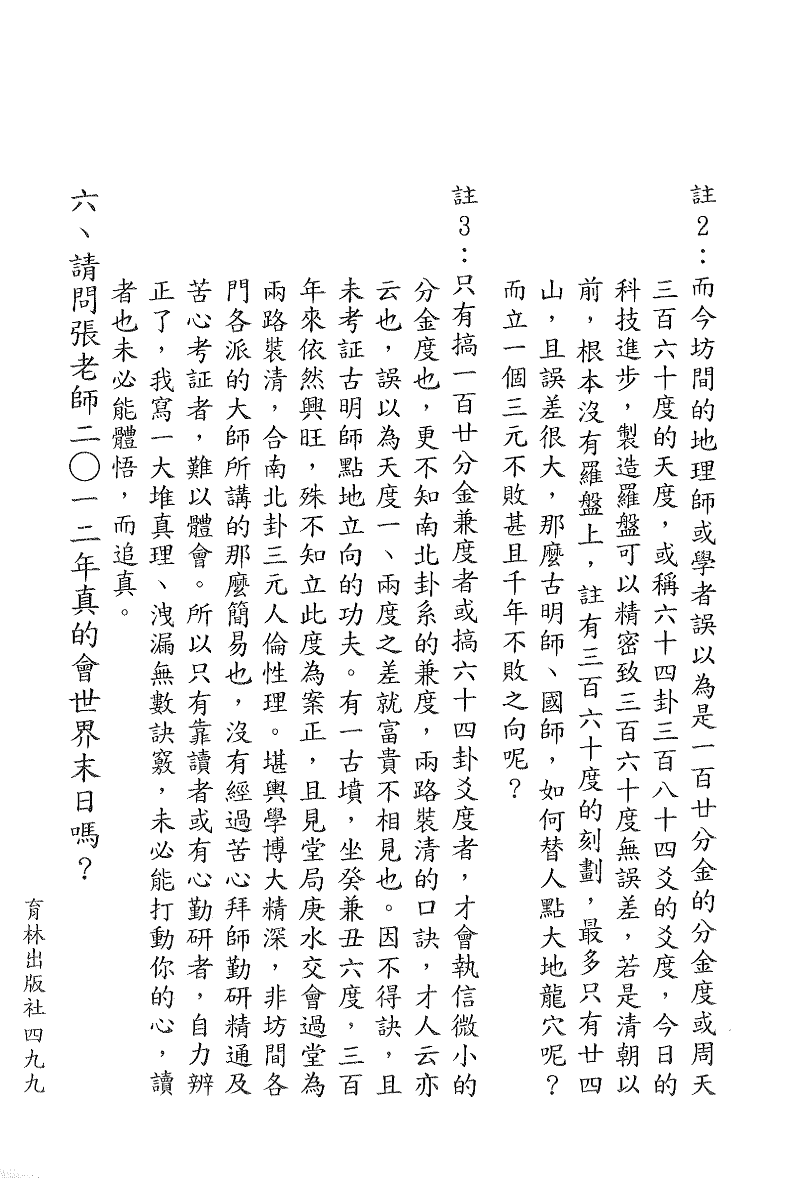 註2：而今坊間的地理師或學者誤以為是一百廿分金的分金度或周天
三百六十度的天度，或稱六十四卦三百八十四爻的爻度，今日的
科技進步，製造羅盤可以精密致三百六十度無誤差，若是清朝以
前，根本沒有羅盤上，註有三百六十度的刻劃，最多只有廿四
山，且誤差很大，那麼古明師、國師，如何替人點大地龍穴呢？
而立一個三元不敗甚且千年不敗之向呢？
註3：只有搞一百廿分金兼度者或搞六十四卦爻度者，才會執信微小的
分金度也，更不知南北卦系的兼度，兩路裝清的口訣，才人云亦
云也，誤以為天度一、兩度之差就富貴不相見也。因不得訣，且
未考証古明師點地立向的功夫。有一古墳，坐癸兼丑六度，三百
年來依然興旺，殊不知立此度為案正，且見堂局庚水交會過堂為
兩路裝清，合南北卦三元人倫性理。堪輿學博大精深，非坊間各
門各派的大師所講的那麼簡易也，沒有經過苦心拜師勤研精通及
苦心考証者，難以體會。所以只有靠讀者或有心勤研者，自力辨
正了，我寫一大堆真理、洩漏無數訣竅，未必能打動你的心，讀
者也未必能體悟，而追真。
六、請問張老師二〇一二年真的會世界末日嗎？
育林出版社 四九九